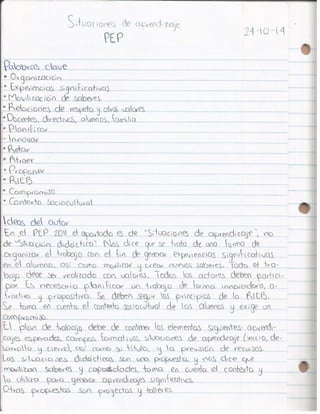 Situaciones de aprendizaje
PEP
24-10-14
Palabras clave
• Organización
• Experiencias significativas
• Movilización de saberes
• Relaciones de respeto y otros valores
• Docentes, directivos, alumnos, familia
• Planificar
• Innovar
• Retar
• Atraer
• Proponer
• RIEB
• Compromiso
• Contexto sociocultural
Ideas del autor
En el PEP 2011 el apartado es de "Situaciones de aprendizaje", no
de "situación didáctica". Nos dice que se trata de una forma de
organizar el trabajo con el fin de generar experiencias significativas
en el alumno, así como movilizar y crear nuevos saberes. Todo el tra-
bajo debe ser realizado con valores. Todos los actores deben partici-
par. Es necesario planificar un trabajo de forma innovadora, a-
tractiva y propositiva. Se deben seguir los principios de la RIEB.
Se toma en cuenta el contexto sociocultural de los alumnos y exige un
compromiso.
El plan de trabajo debe de contener los elementos siguientes: aprendi-
zajes esperados, campos formativos, situaciones de aprendizaje (inicio, de-
sarrollo y cierre), así como su título, y la previsión de recursos.
Las situaciones didácticas son una propuesta y nos dice que
movilizan saberes y capacidades, toma en cuenta el contexto y
lo utiliza para generar aprendizajes significativos.
Otras propuestas son proyectos y talleres.